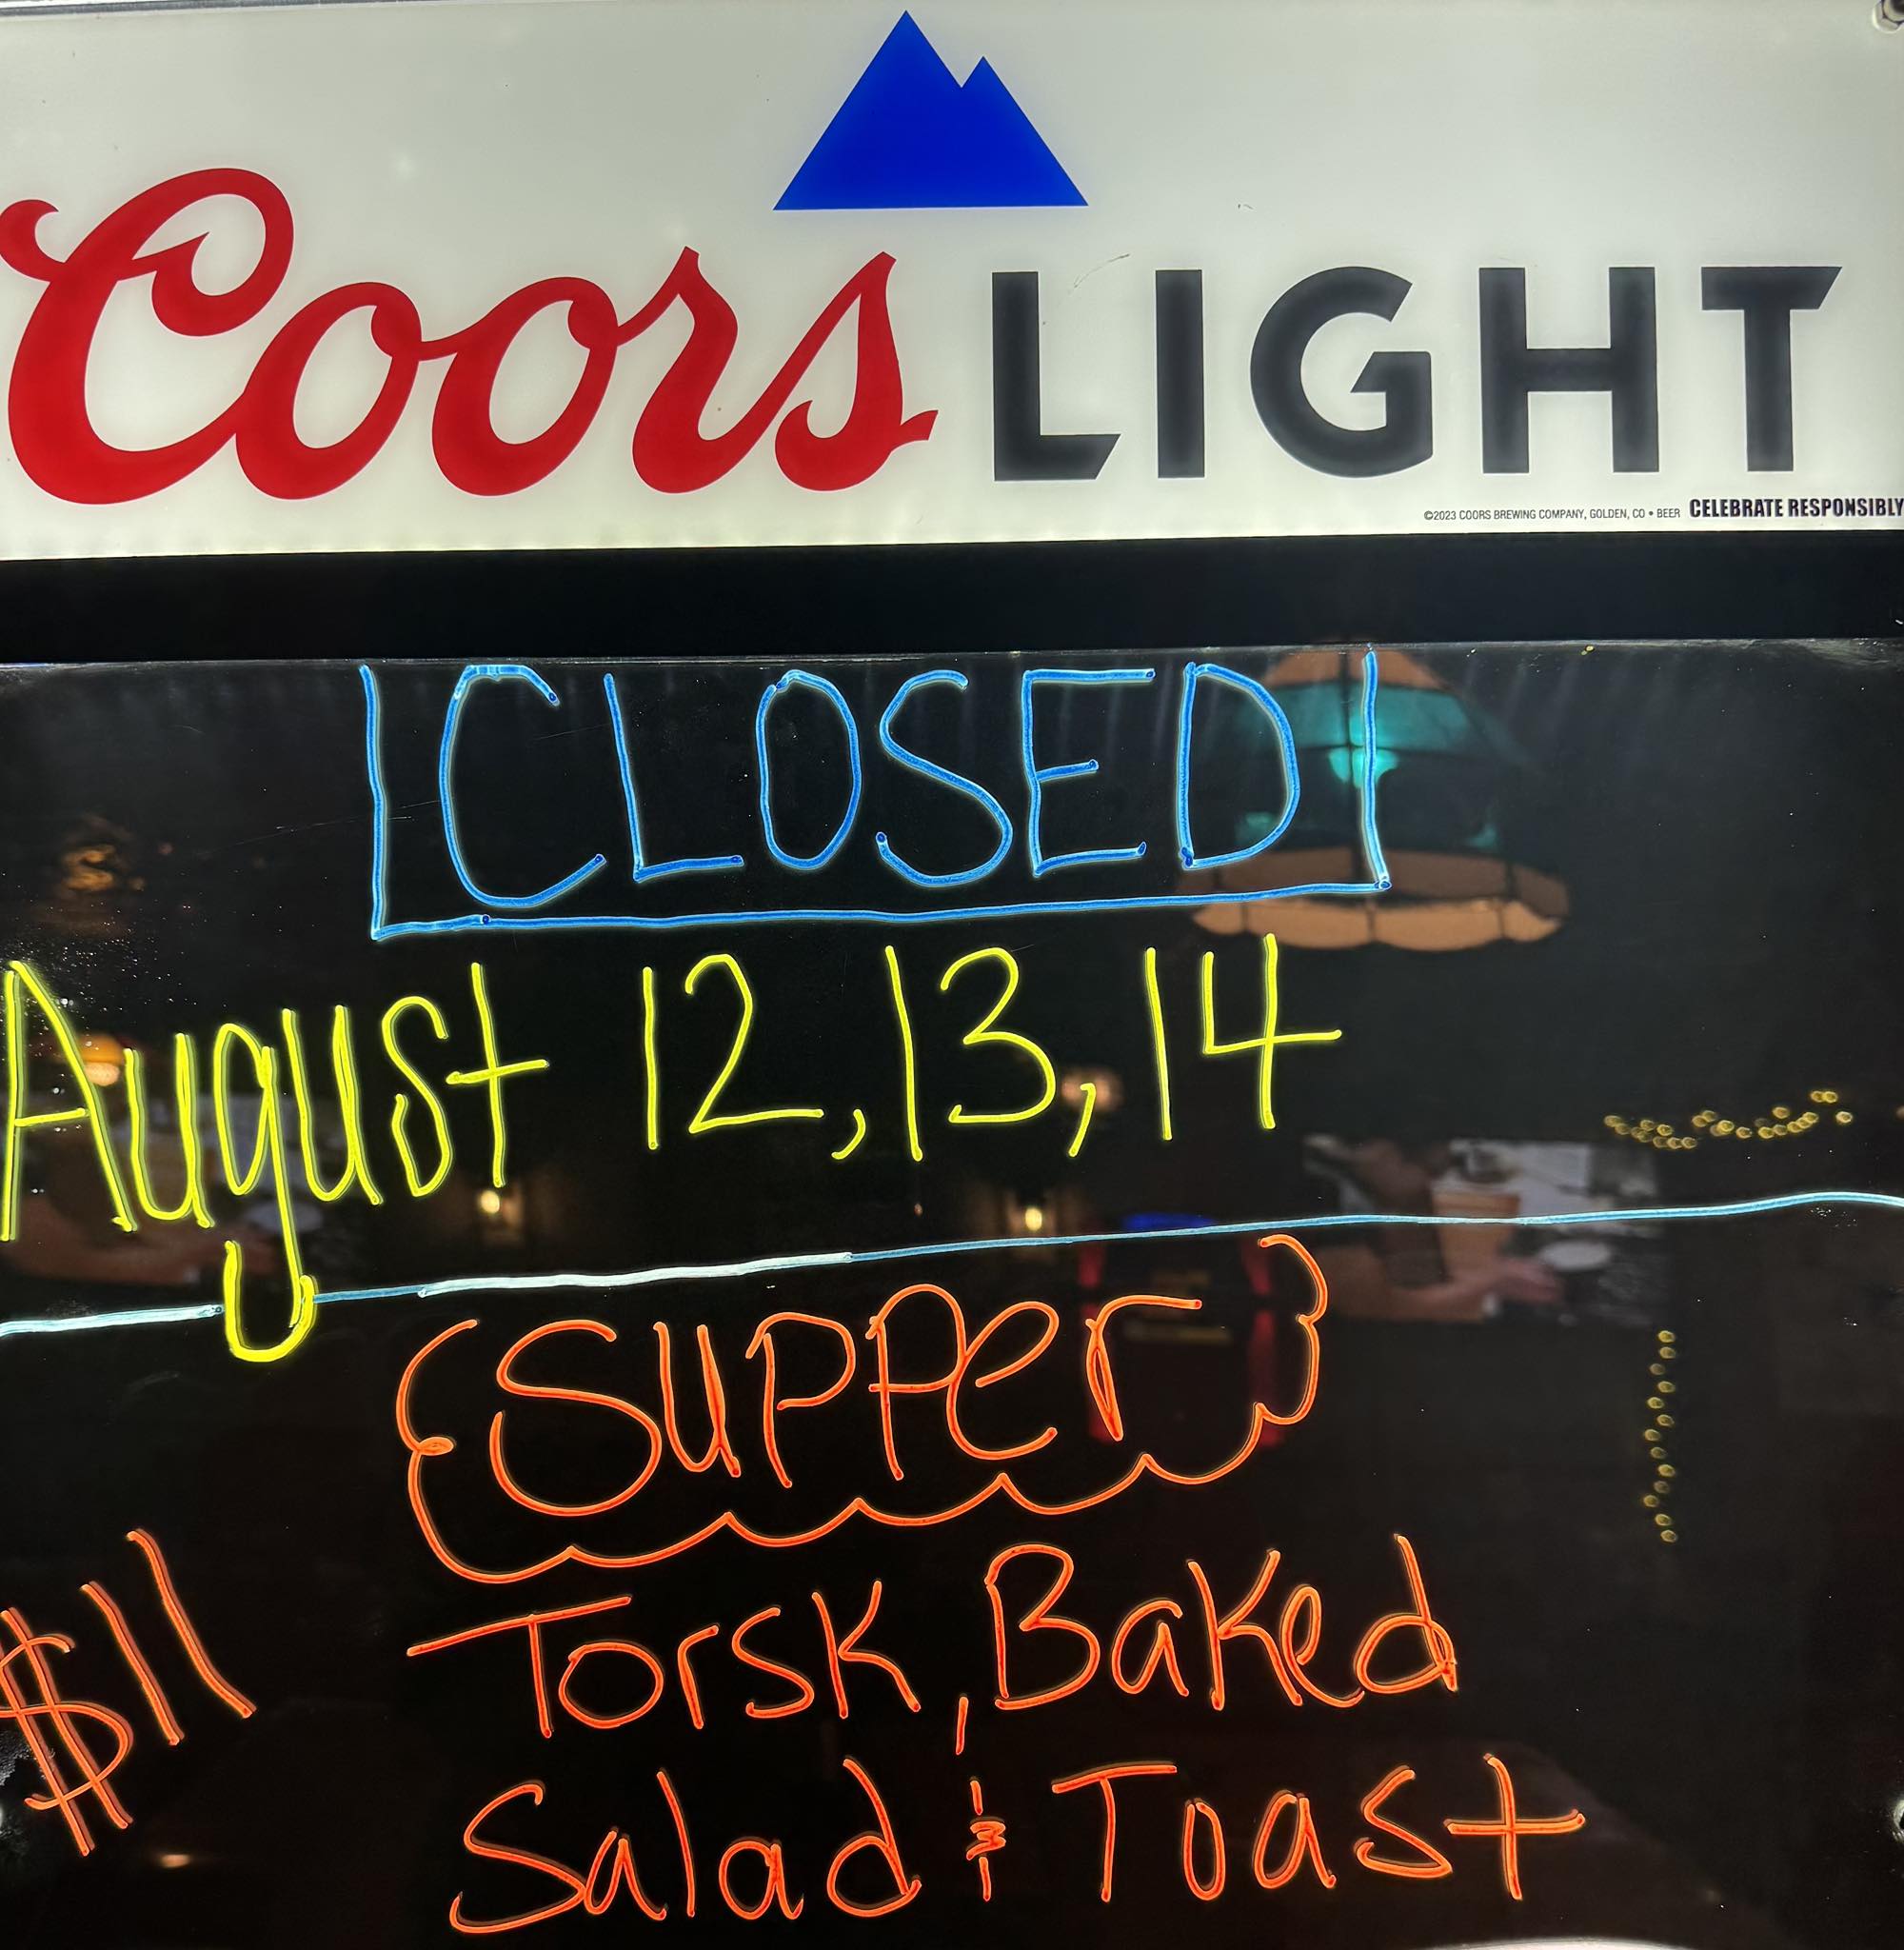 Coors LIGHT
©2023 COORS BREWING COMPANY, GOLDEN, CO • BEER CELEBRATE RESPONSIBLY
CLOSED
August 12, 13, 14
Supper
$11
Torsk, Baked
Salad & Toast